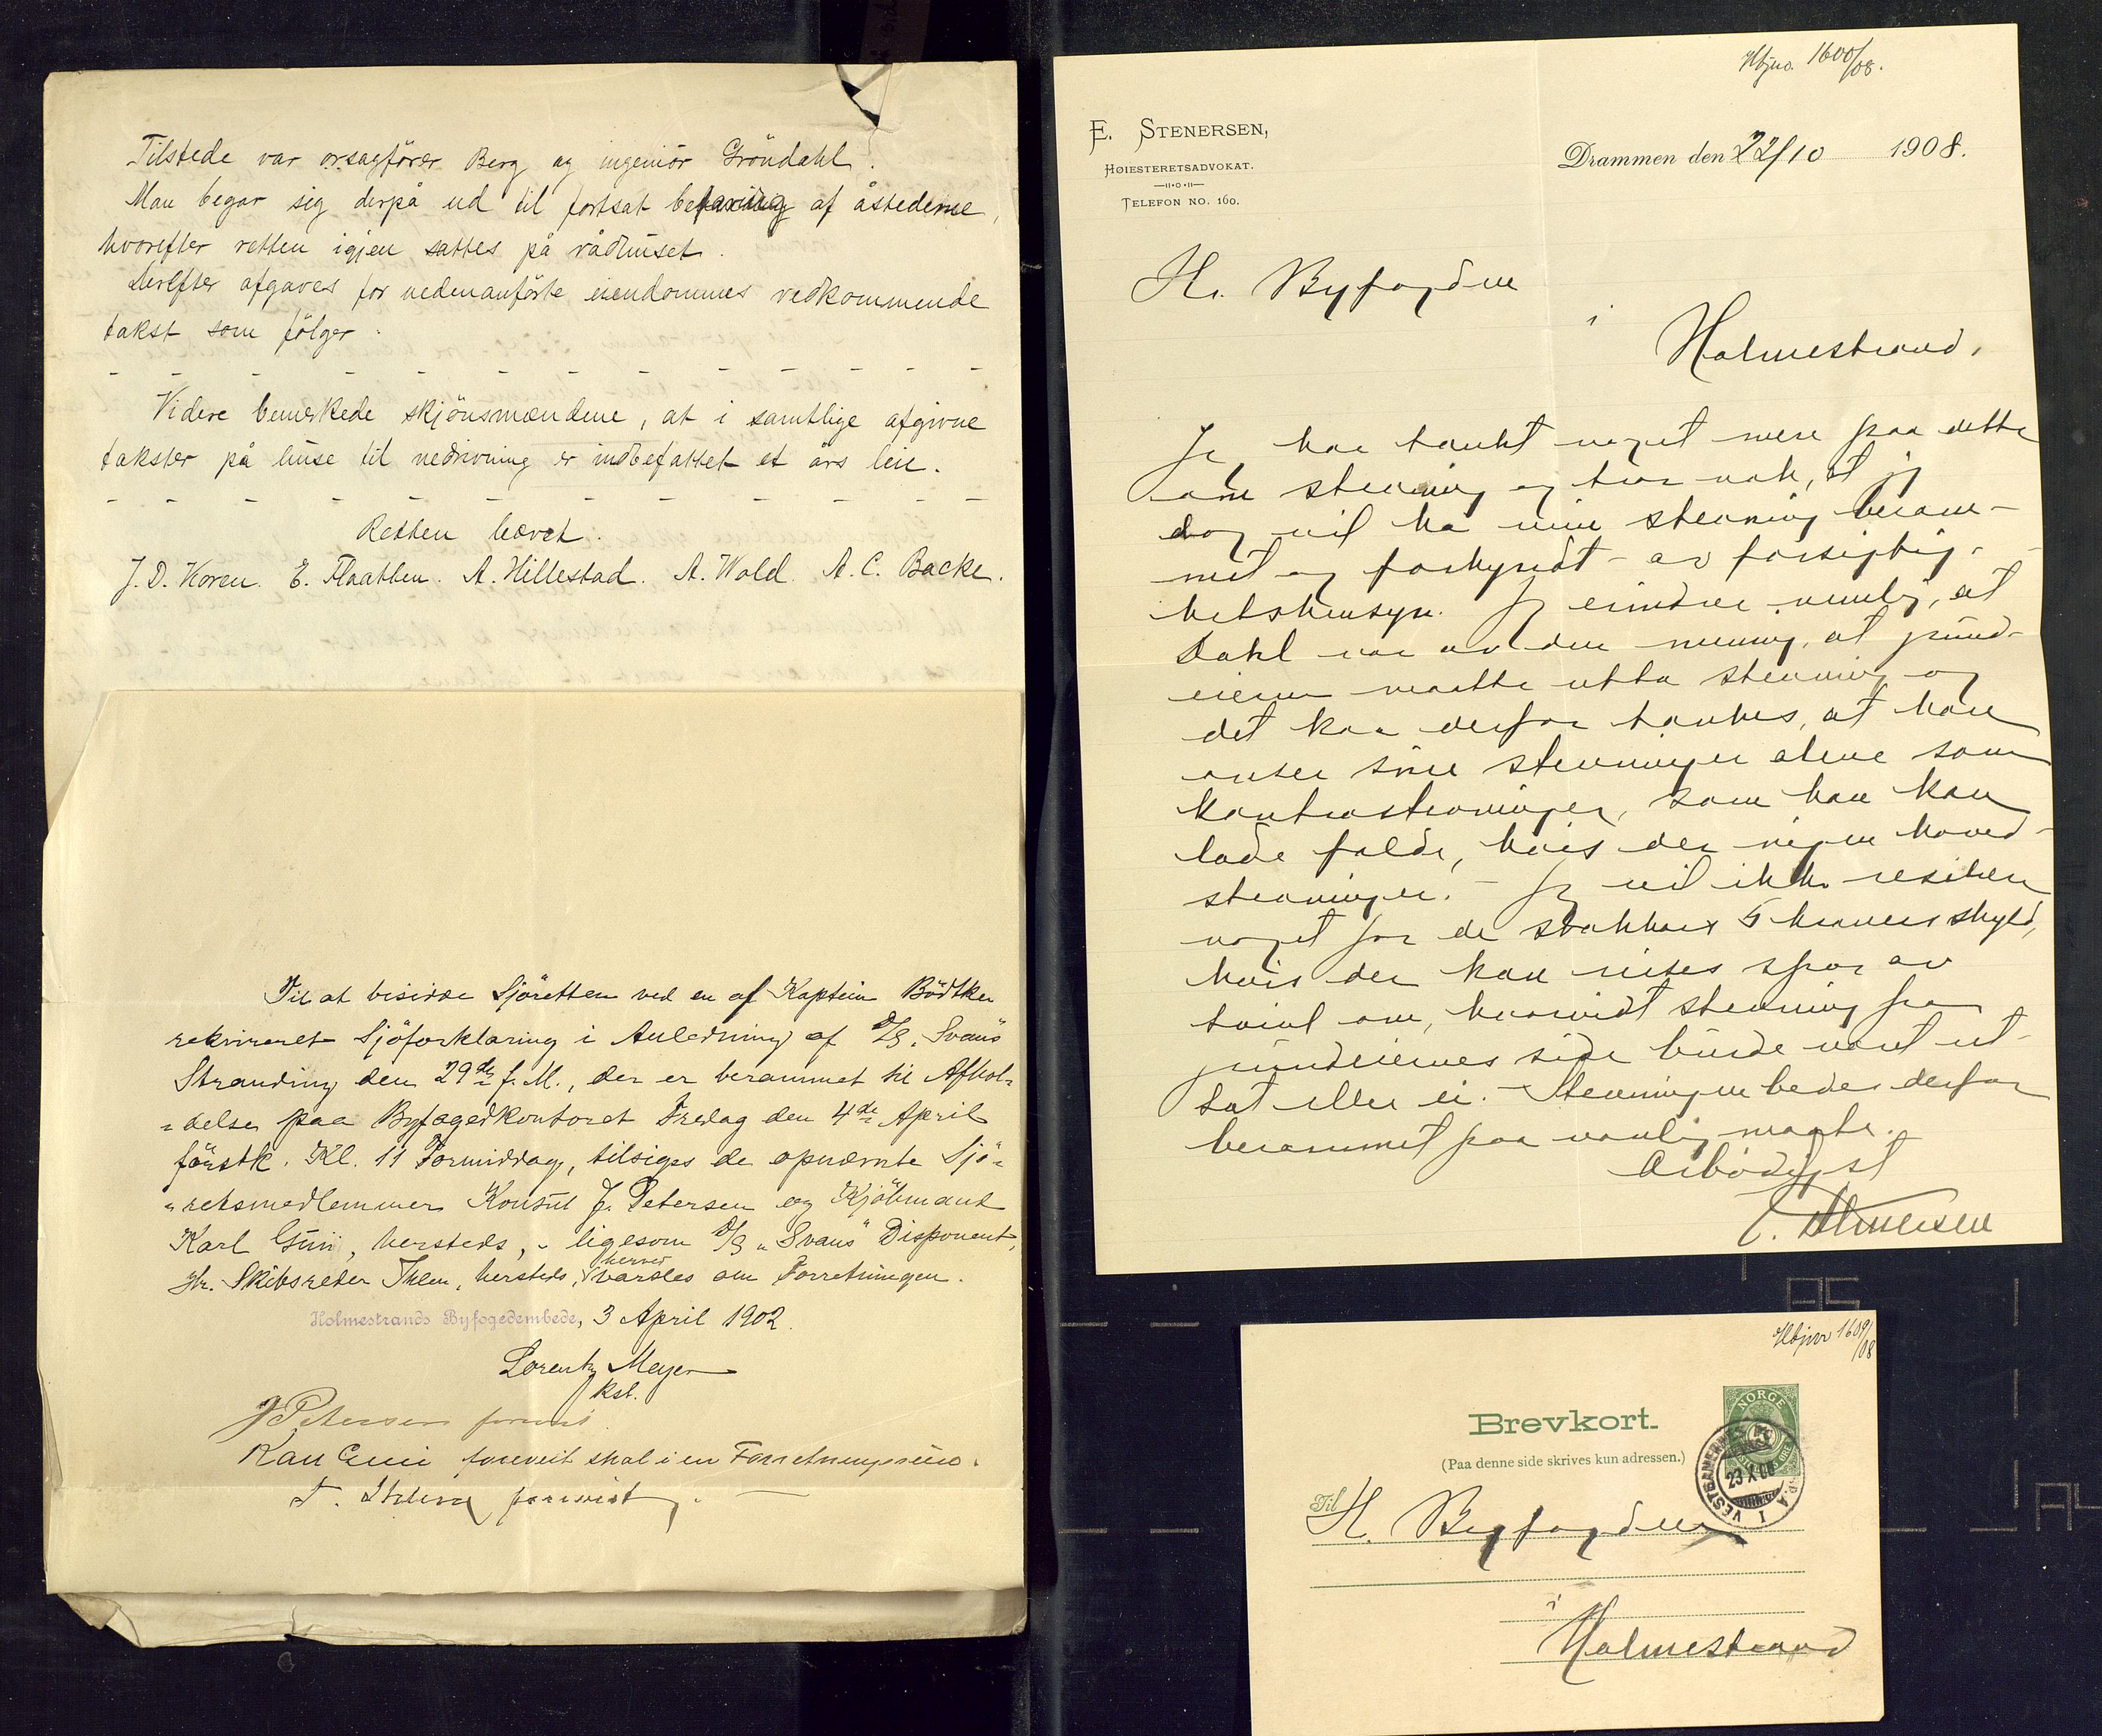 Tilstede var orsagförer Berg og ingeniör Gröndahl.
Man begav sig derpå ud til fortsat befaring af åstederne,
hvorefter retten igjen sattes på rådhuset.
Derefter afgaves for nedenanförte eiendommes vedkommende
takst som fölger:
Videre bemerkede skjönsmændene, at i samtlige afgivne
takster på huse til nedrivning er indbefattet et års leie.
Retten hævet.
J. D. Koren. E. Flaatten. A. Hillestad. A. Wold. A. C. Backe.
Til at bisidde Sjöretten ved en af Kaptein Bödtker
rekvireret Sjöforklaring i Anledning af D/S. "Svans"
Stranding den 29de f. M., der er berammet til Afhol-
delse paa Byfogedkontoret Fredag den 4de April
förstk. Kl. 11 Formiddag, tilsiges de opnævnte Sjö-
retsmedlemmer Konsul J. Petersen og Kjöbmand
Karl Gui, hersteds, - ligesom D/S "Svans" Disponent,
Hr. Skibsreder Ihlen, hersteds, herved varsles om Forretningen.
Holmestrands Byfogedembede, 3 April 1902.
Lorentz Meyer
kst.
J Petersen forevist.
Karl Gui forevist skal i en Forretningsreise.
T. Ihlen forevist
Hbjno. 1600/08.
E. STENERSEN,
HØIESTERETSADVOKAT.
TELEFON NO. 160.
Drammen den 22/10 1908.
Hr. Byfogden
i
Holmestrand.
Jeg har tænkt noget mere paa dette
om stevning og tror nok, at jeg
dog vil ha min stevning beram-
met og forkyndt - av forsigtig-
hetshensyn. Jeg erindrer nemlig, at
Dahl var av den mening, at grund-
eierne maatte utta stevning og
det kan derfor tænkes, at han
anser sine stevninger alene som
kontrastevninger, som han kan
lade falde, hvis der ingen hoved-
stevning er. - Jeg vil ikke resikere
noget for de stakkars 5 kroners skyld,
hvis der kan reises spor av
tvivl om, hvorvidt stevning fra
grundeiernes side burde været ut-
tat eller ei. - Stevningen bedes derfor
berammet paa vanlig maate.
Ærbødigst
E. Stenersen
Hbjnr 1609/08
Brevkort.
(Paa denne side skrives kun adressen.)
NORGE
23 X 08
Til
H. Byfogden
i
Holmestrand